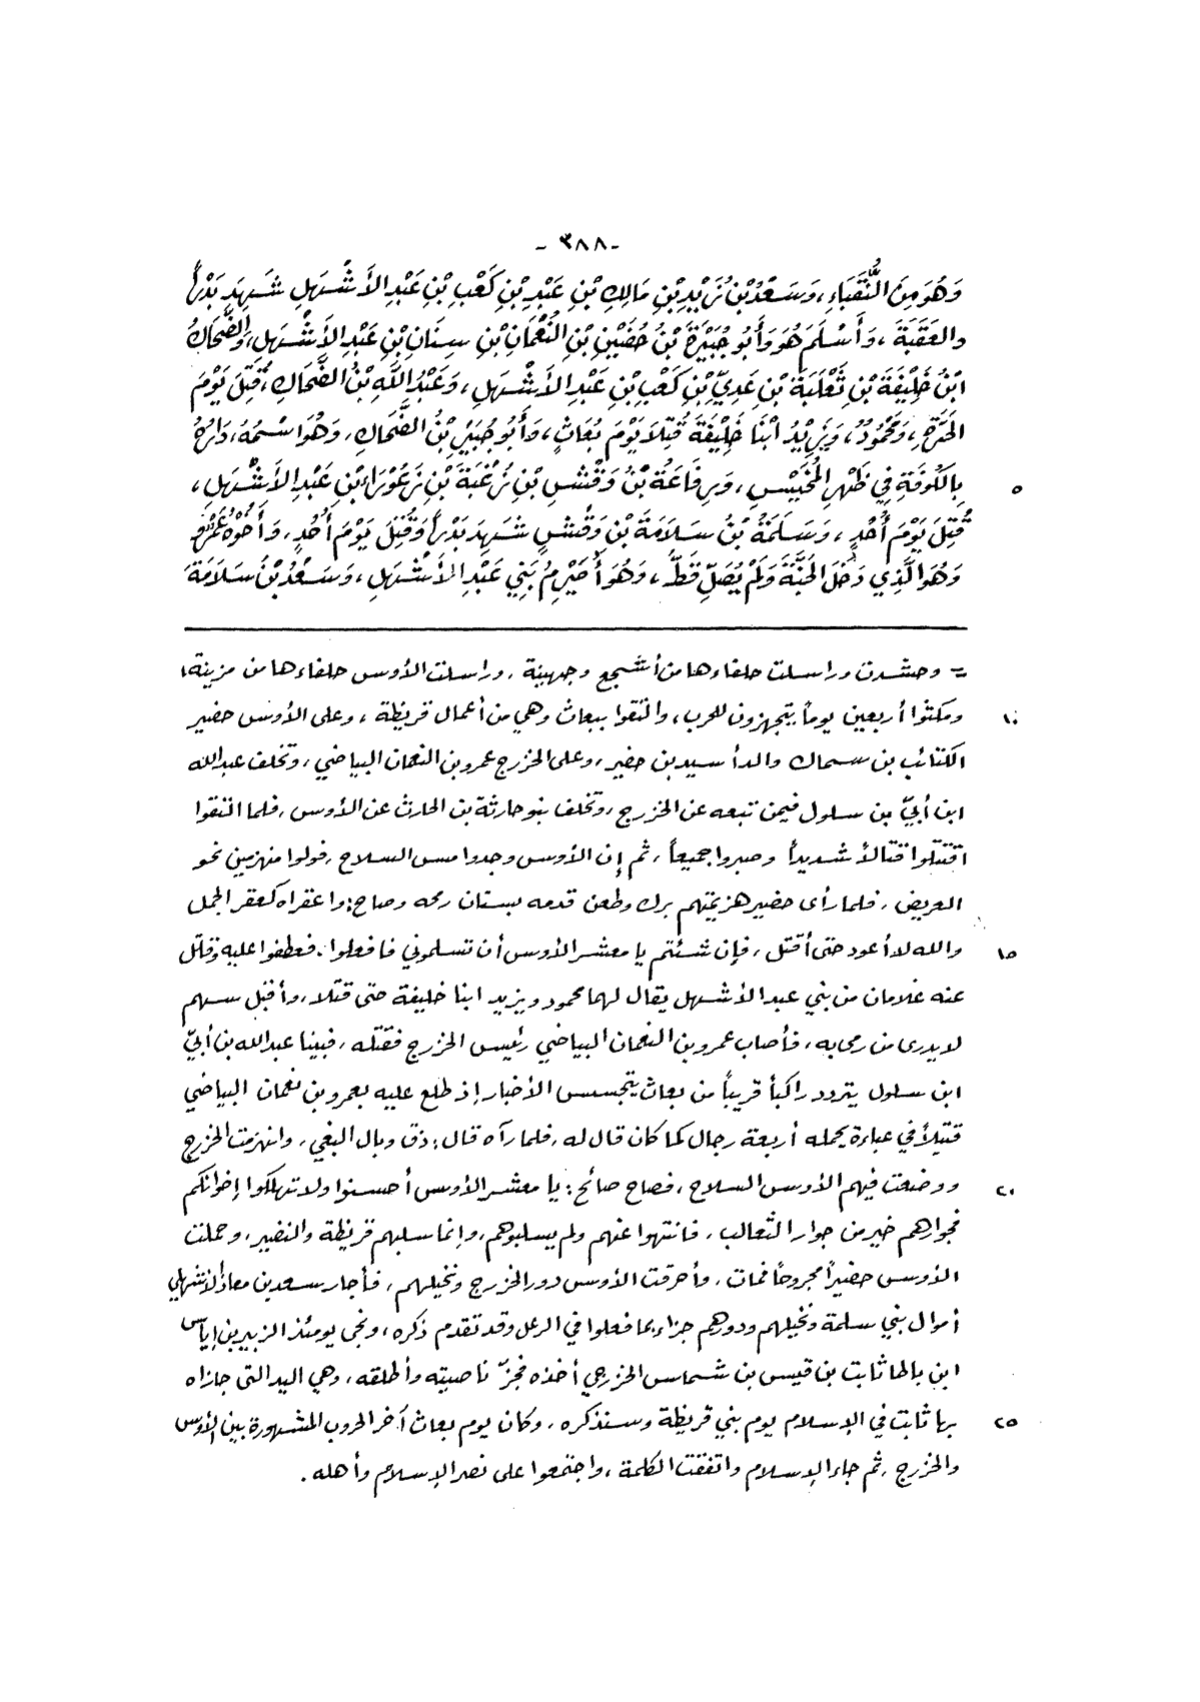 - ٣٨٨ -
وَهُوَ مِنَ النُّقَبَاءِ، وَسَعْدُ بْنُ زَيْدِ بْنِ مَالِكِ بْنِ عَبْدِ بْنِ كَعْبِ بْنِ عَبْدِ الأَشْهَلِ شَهِدَ بَدْراً
والعَقَبَةَ، وَأَسْلَمَ هُوَ وَأَبُو جُبَيْرَةَ بْنُ حُصَيْنِ بْنِ النُّعْمَانِ بْنِ سِنَانِ بْنِ عَبْدِ الأَشْهَلِ، والضَّحَاكُ
ابْنُ خَلِيْفَةَ بْنِ ثَعْلَبَةَ بْنِ عَدِيِّ بْنِ كَعْبِ بْنِ عَبْدِ الأَشْهَلِ، وَعَبْدُ اللَّهِ بْنُ الضَّحَاكِ، قُتِلَ يَوْمَ
الحَرَّةِ، وَمَحْمُودُ، وَيَزِيْدُ ابْنَا خَلِيْفَةَ قُتِلَا يَوْمَ بُعَاثٍ، وَأَبُو جُبَيْرِ بْنُ الضَّحَاكِ، وَهُوَ اسْمُهُ، دَارُهُ
بِالكُوفَةِ فِي ظَهْرِ المُخَيَّسِ، وَرِفَاعَةُ بْنُ وَقْشِ بْنِ زُغْبَةَ بْنِ زَعَوْرَاءِ بْنِ عَبْدِ الأَشْهَلِ، ٥
قُتِلَ يَوْمَ أُحُدٍ، وَسَلَمَةُ بْنُ سَلَامَةَ بْنِ وَقْشٍ شَهِدَ بَدْراً وَقُتِلَ يَوْمَ أُحُدٍ، وَأَخُوْهُ عَمْرٌو
وَهُوَ الَّذِي دَخَلَ الجَنَّةَ وَلَمْ يُصَلِّ قَطُّ، وَهُوَ أُصَيْرِمُ بَنِي عَبْدِ الأَشْهَلِ، وَسَعْدُ بْنُ سَلَامَةَ
= وحشدت وراسلت حلفاءها من أشجع وجهينة، وراسلت الأوس حلفاءها من مزينة،
ومكثوا أربعين يوماً يتجهزون للحرب، والتقوا ببعاث وهي من أعمال قريظة، وعلى الأوس حضير ١٠
الكتائب بن سماك والد أسيد بن حضير، وعلى الخزرج عمرو بن النعمان البياضي، وتخلف عبدالله
ابن أبيّ بن سلول فيمن تبعه عن الخزرج، وتخلف بنو حارثة بن الحارث عن الأوس، فلما التقوا
اقتتلوا قتالاً شديداً وصبروا جميعاً، ثم إن الأوس وجدوا مس السلاح، فولوا منهزمين نحو
العريض، فلما رأى حضير هزيمتهم برك وطعن قدمه بسنان رمحه وصاح: واعقراه كعقر الجمل
والله لا أعود حتى أقتل، فإن شئتم يا معشر الأوس أن تسلموني فافعلوا، فعطفوا عليه وقاتل ١٥
عنه غلامان من بني عبد الأشهل يقال لهما محمود ويزيد ابنا خليفة حتى قتلا، وأقبل سهم
لا يدرى من رمى به، فأصاب عمرو بن النعمان البياضي رئيس الخزرج فقتله، فبينا عبدالله بن أبيّ
ابن سلول يتردد راكباً قريباً من بعاث يتجسس الأخبار إذ طلع عليه بعمرو بن نعمان البياضي
قتيلاً في عباءة يحمله أربعة رجال كما كان قال له، فلما رآه قال: ذق وبال البغي، وانهزمت الخزرج
ووضعت فيهم الأوس السلاح، فصاح صائح: يا معشر الأوس أحسنوا ولا تهلكوا إخوانكم ٢٠
فجوارهم خير من جوار الثعالب، فانتهوا عنهم ولم يسلبوهم، وإنما سلبهم قريظة والنضير، وحملت
الأوس حضيراً مجروحاً فمات، وأحرقت الأوس دور الخزرج ونخيلهم، فأجار سعد بن معاذ الأشهلي
أموال بني سلمة ونخيلهم ودورهم جزاء بما فعلوا في الرعل وقد تقدم ذكره، ونجى يومئذ الزبير بن إياس
ابن باطا ثابت بن قيس بن شماس الخزرجي أخذه فجزّ ناصيته وأطلقه، وهي اليد التي جازاه
بها ثابت في الإسلام يوم بني قريظة وسنذكره، وكان يوم بعاث آخر الحروب المشهورة بين الأوس ٢٥
والخزرج، ثم جاء الإسلام واتفقت الكلمة، واجتمعوا على نصر الإسلام وأهله.